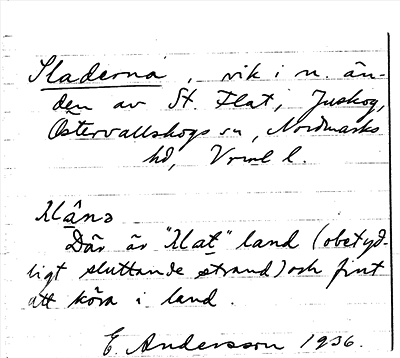 Sladerna, vik i n. än-
den av St. Flat, Juskog,
Östervallskogs sn, Nordmarks
hd, Vrml l.
Där är "slat" land (obetyd-
ligt sluttande strand) och fint
att köra i land.
E. Andersson 1936.